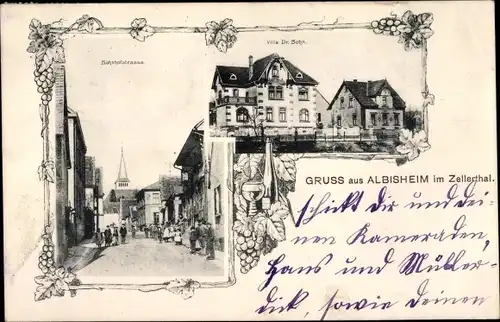 Bahnhofstrasse.
Villa Dr. Bohn.
GRUSS aus ALBISHEIM im Zellerthal.
schickt Dir und dei-
nen Kameraden,
Hans und Müller-
dick, sowie deinen